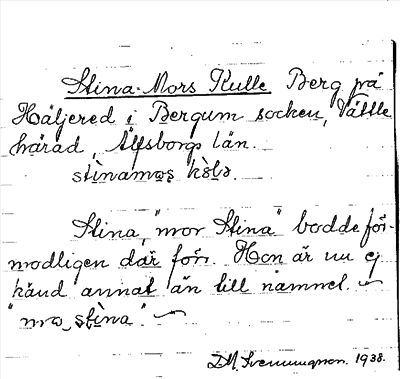 Stina-Mors Kulle Berg på
Häljered i Bergum socken, Vättle
härad, Älfsborgs län.
stìnamoʂ kòlə.
Stina, "mor Stina" bodde för-
modligen där förr. Hon är nu ej
känd annat än till namnet.
"mo ʂtìna".
1938.